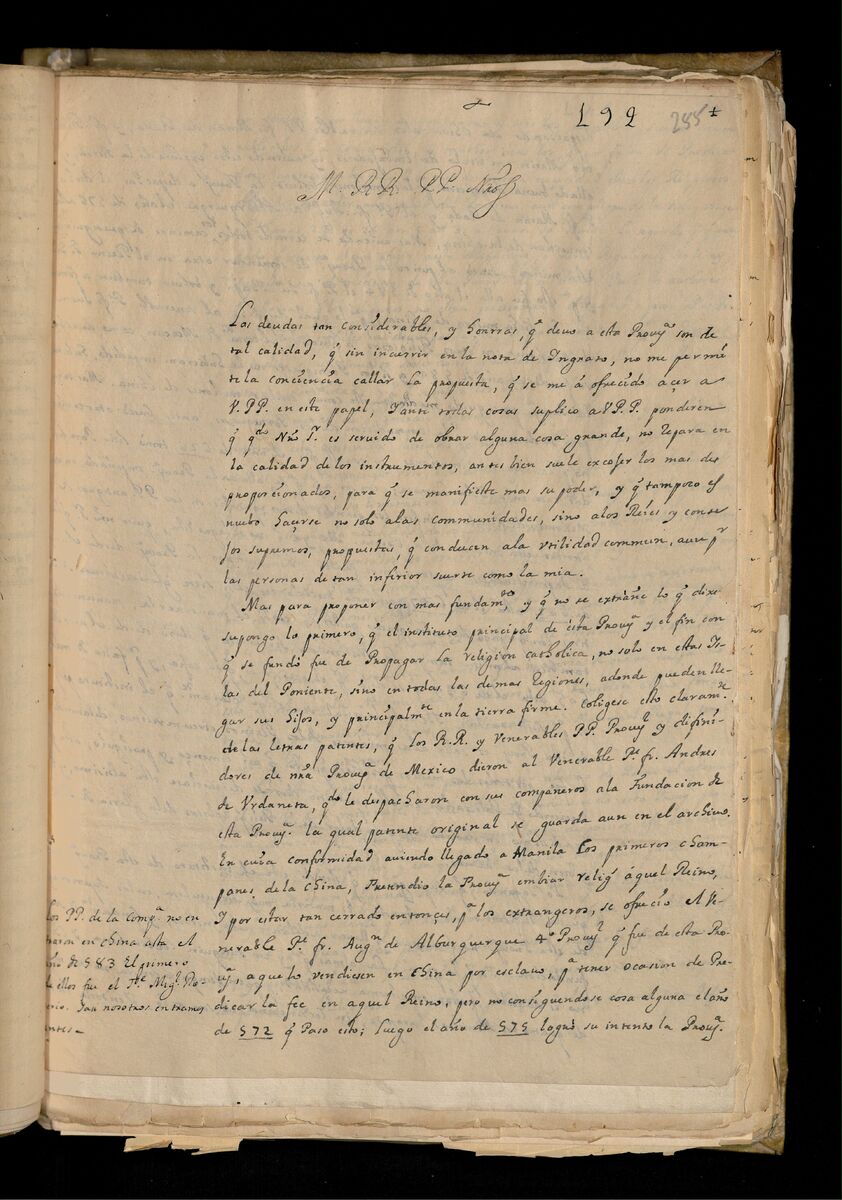 192 255
M. RR. PP. Nros
Las deudas tan considerables, y honrras, q̃ deuo a esta Prouᵃ son de
tal calidad, q̃ sin incurrir en la nota de Ingrato, no me permi
te la conciencia callar la propuesta, q̃ se me á ofrecido açer a
V.PP. en este papel, Y ante todas cosas suplico a V.P.P. ponderen
q̃ qᵈᵒ Nro Sʳ. es seruido de obrar alguna cosa grande, no repara en
la calidad de los instrumentos, antes bien suele escojer los mas des
proporcionados, para q̃ se manifieste mas su poder, y q̃ tampoco es
nuebo haçerse no solo a las communidades, sino a los Reies y conse
jos supremos, propuestas, q̃ conducen a la vtilidad commun, aun pʳ
las personas de tan inferior suerte como la mia.
Mas para proponer con mas fundamᵗᵒ, y q̃ no se extrañe lo q̃ dire
supongo lo primero, q̃ el instituto principal de esta Prouᵃ y el fin con
q̃ se fundó fue de Propagar la religion catholica, no solo en estas Is-
las del Poniente, sino en todas las demas regiones, adonde pueden lle-
gar sus hijos, y principalmᵗᵉ en la tierra firme. Colígese esto claramᵗᵉ
de las letras patentes, q̃ los R.R. y Venerables PP. Prouˡ y difini-
dores de nrã Prouᵃ de Mexico dieron al Venerable Pᵉ fr. Andres
de Vrdaneta, qᵈᵒ le despacharon con sus compañeros a la Fundacion de
esta Prouᵃ. la qual patente original se guarda aun en el archiuo.
En cuia conformidad auiendo llegado a Manila los primeros cham-
panes de la China, Pretendio la Prouᵃ embiar religˢ á aquel Reino,
Y por estar tan cerrado entonçes, pᵃ los extrangeros, se ofrecio el Ve-
nerable Pᵉ fr. Augⁿ de Alburquerque 4º Prouˡ q̃ fue de esta Pro-
uᵃ, a que lo vendiesen en China por esclauo, pᵃ tener ocasion de Pre-
dicar la fee en aquel Reino, pero no consiguiendose cosa alguna el año
de 572 q̃ Paso esto; Luego el año de 575 logró su intento la Prouᵃ.
Los PP. de la Compᵃ no en
traron en China asta el
año de 583 El primero
de ellos fue el Pᵉ Migˡ Ro-
gerio. Ian nosotros entramos
antes-